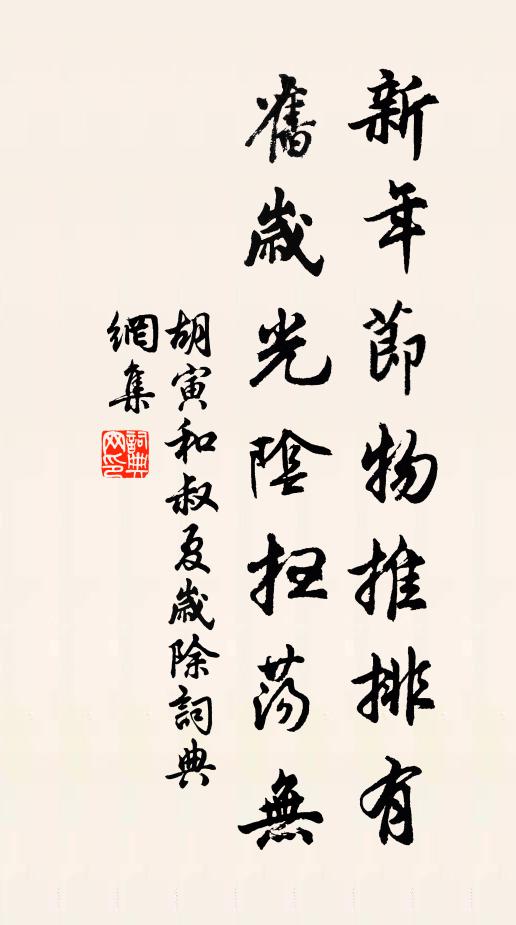 新年節物推排有
舊歲光陰扫蕩無
胡寅和叔夏歲除詞典
網集
詞典
网印